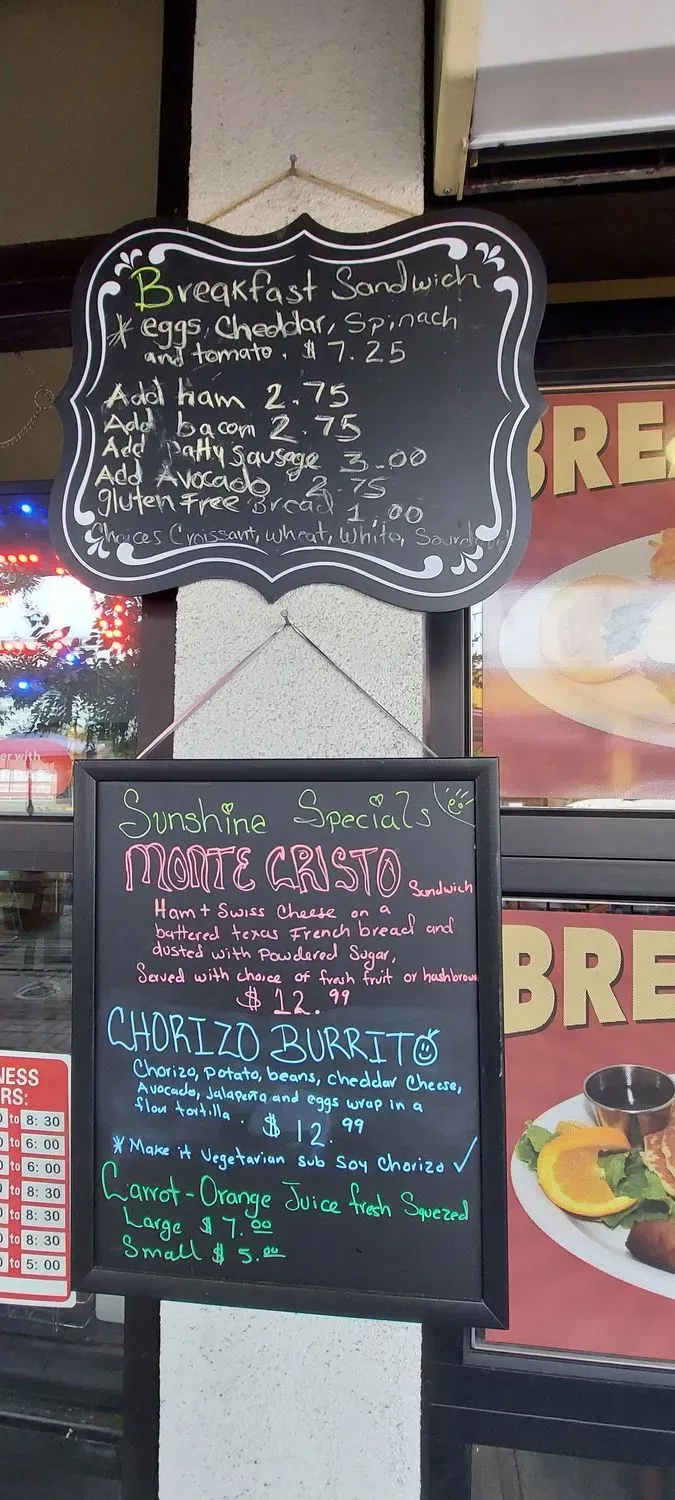 Breakfast Sandwich
* eggs, Cheddar, Spinach
and tomato. $ 7.25
Add ham 2.75
Add bacon 2.75
Add Patty sausage 3.00
Add Avocado 2.75
gluten Free Bread 1.00
Choices Croissant, Wheat, White,
Sunshine Specials
MONTE CRISTO Sandwich
Ham + Swiss Cheese on a
battered texas French bread and
dusted with Powdered Sugar,
Served with choice of fresh fruit or hashbrown
$ 12.99
CHORIZO BURRITO
Chorizo, Potato, beans, cheddar Cheese,
Avocado, Jalapeño and eggs wrap in a
flour tortilla. $ 12.99
* Make it Vegetarian sub Soy Chorizo ✓
Carrot-Orange Juice fresh Squezed
Large $ 7.00
Small $ 5.00
BRE
BRE
er with
NESS
RS:
to 8: 30
to 6: 00
to 6: 00
to 8: 30
to 8: 30
to 8: 30
to 5: 00